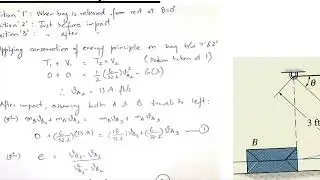 Position '1': When bag is released from rest at θ=0°
Position '2': Just before impact
Position '3': " after "
Applying conservation of energy principle on bag b/w 1&2
T₁ + V₁ = T₂ + V₂ (datum taken at 1)
0 + 0 = ½ (6/32.2) v²A₂ - 6(3)
∴ vA₂ = 13.9 ft/s
After impact, assuming both A & B travel to left:
mB vB₂ + mA vA₂ = mA vA₃ + mB vB₃
0 + (6/32.2)(13.9) = (12/32.2) vB₃ + (6/32.2) vA₃ — ①
e = vB₃ - vA₃ / vA₂ - vB₂
θ
3 ft
B